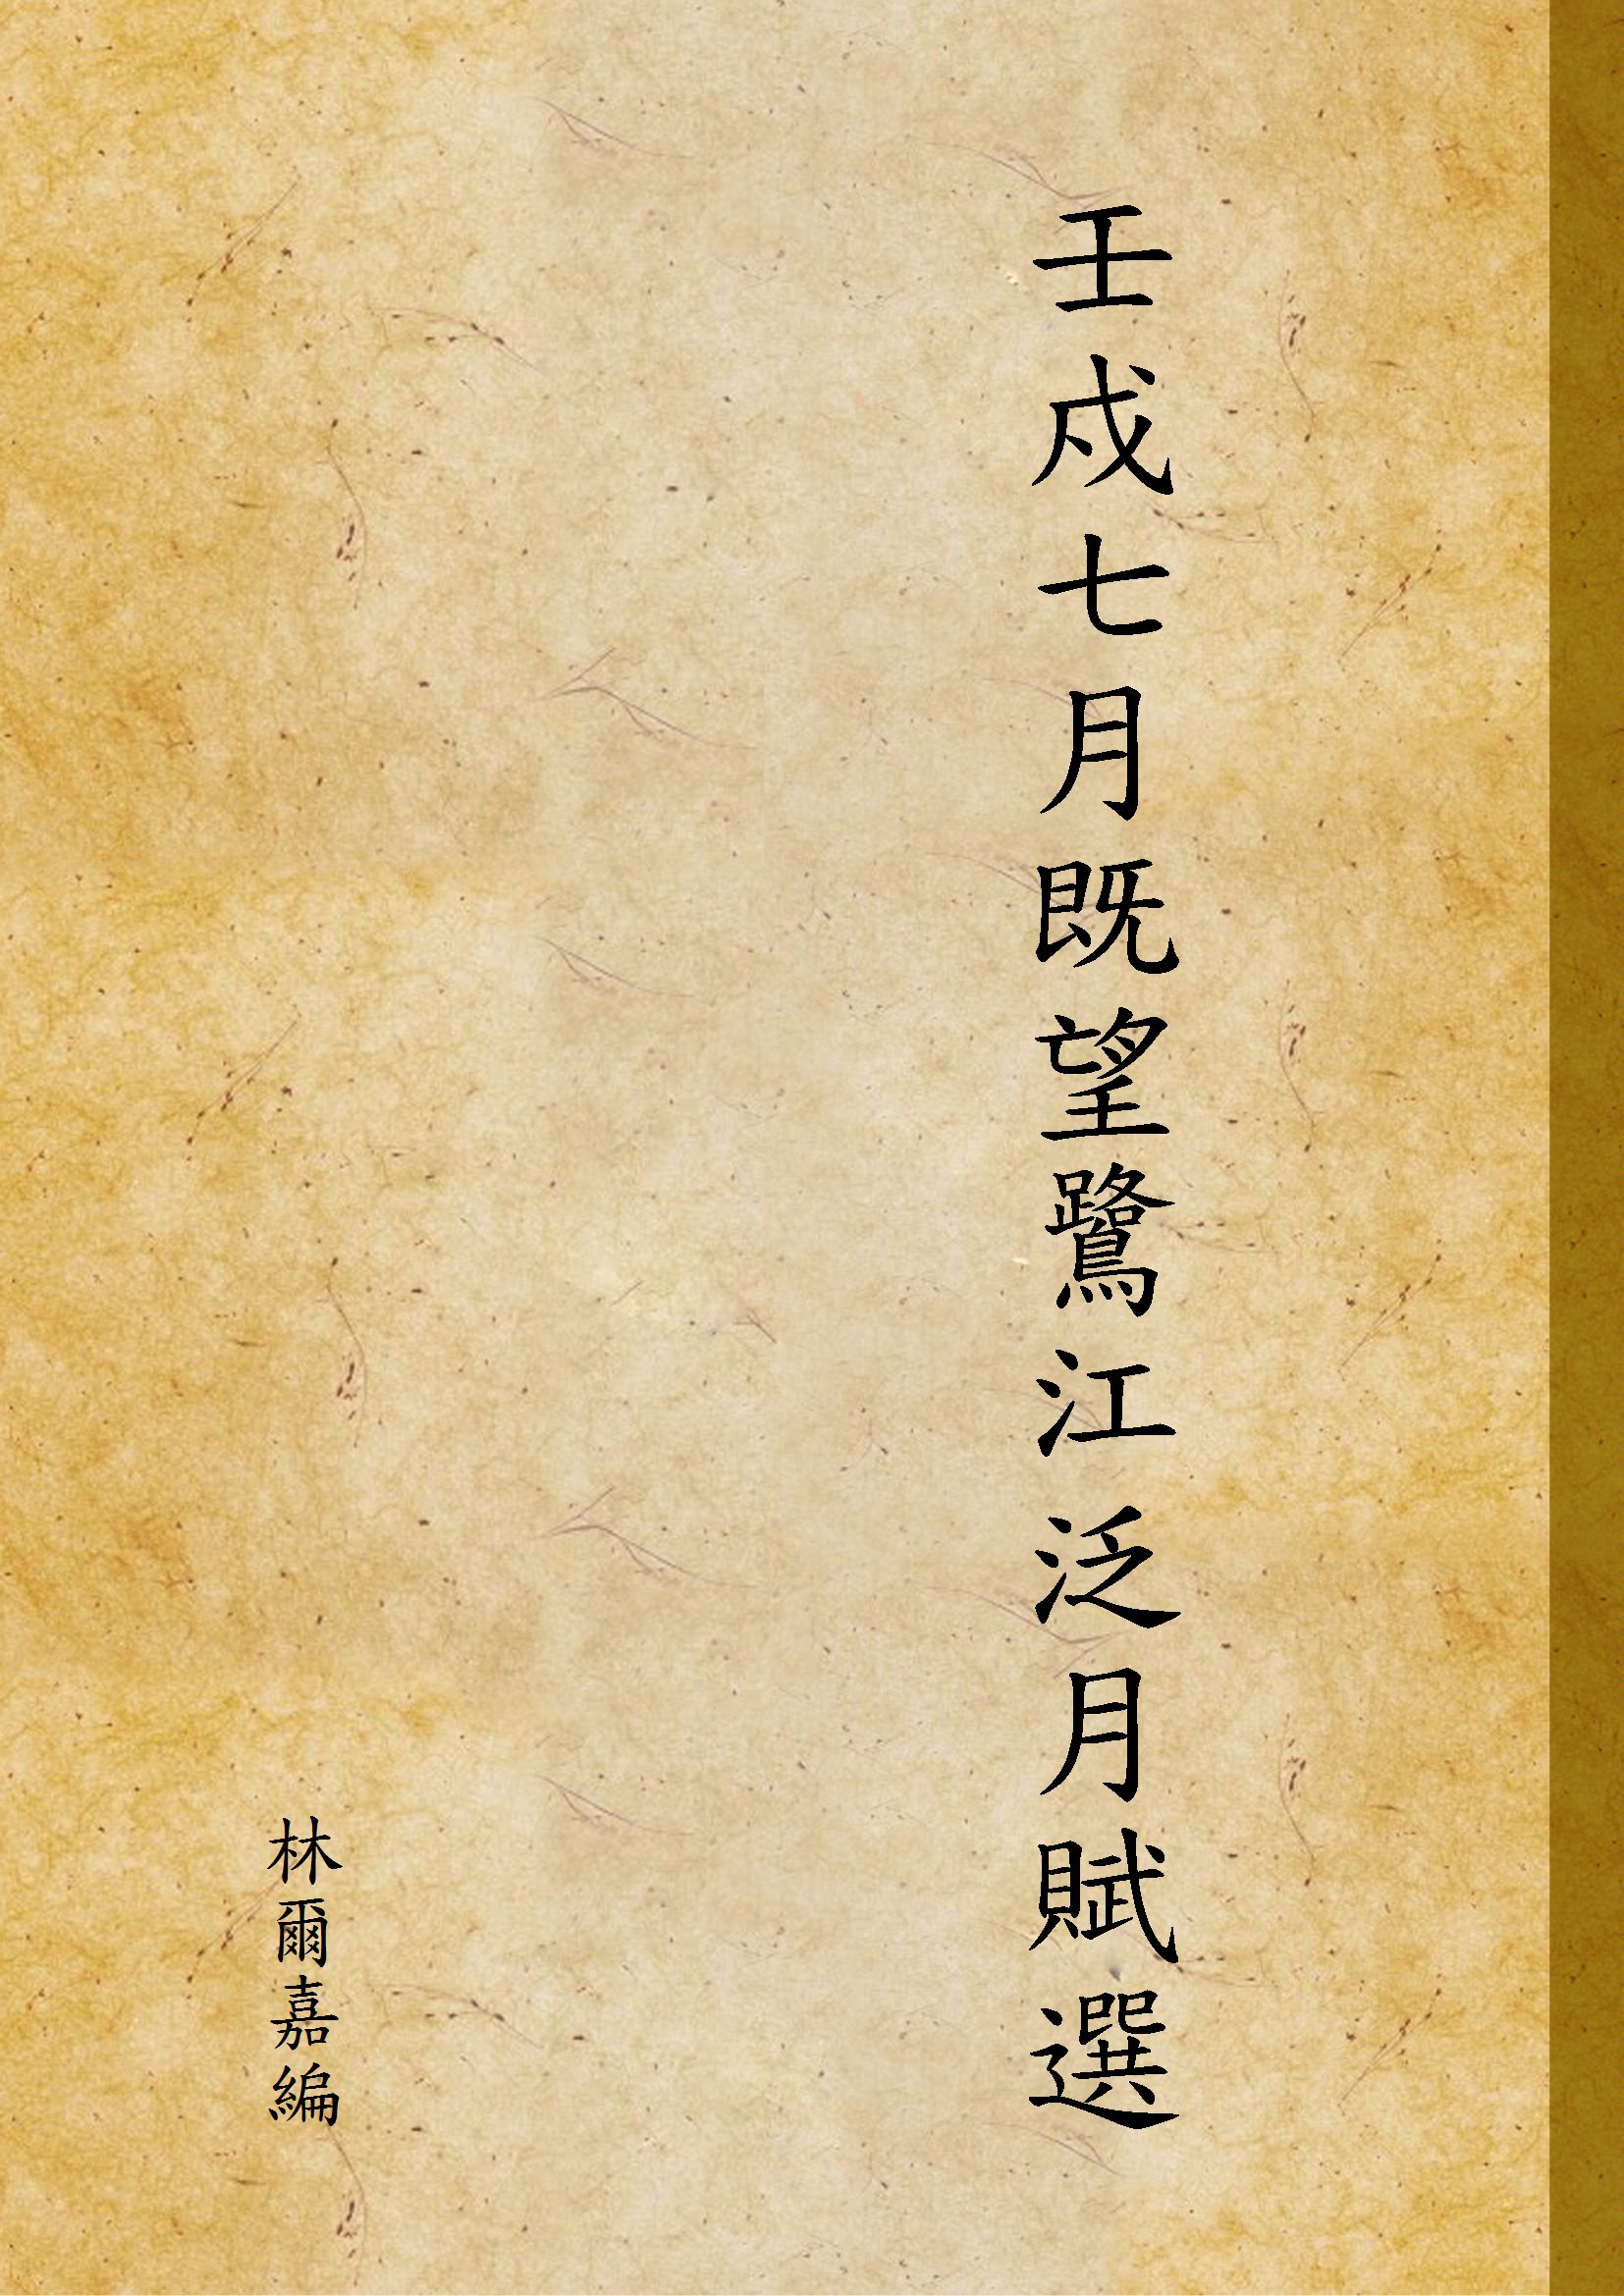 壬戍七月既望鷺江泛月賦選
林爾嘉編